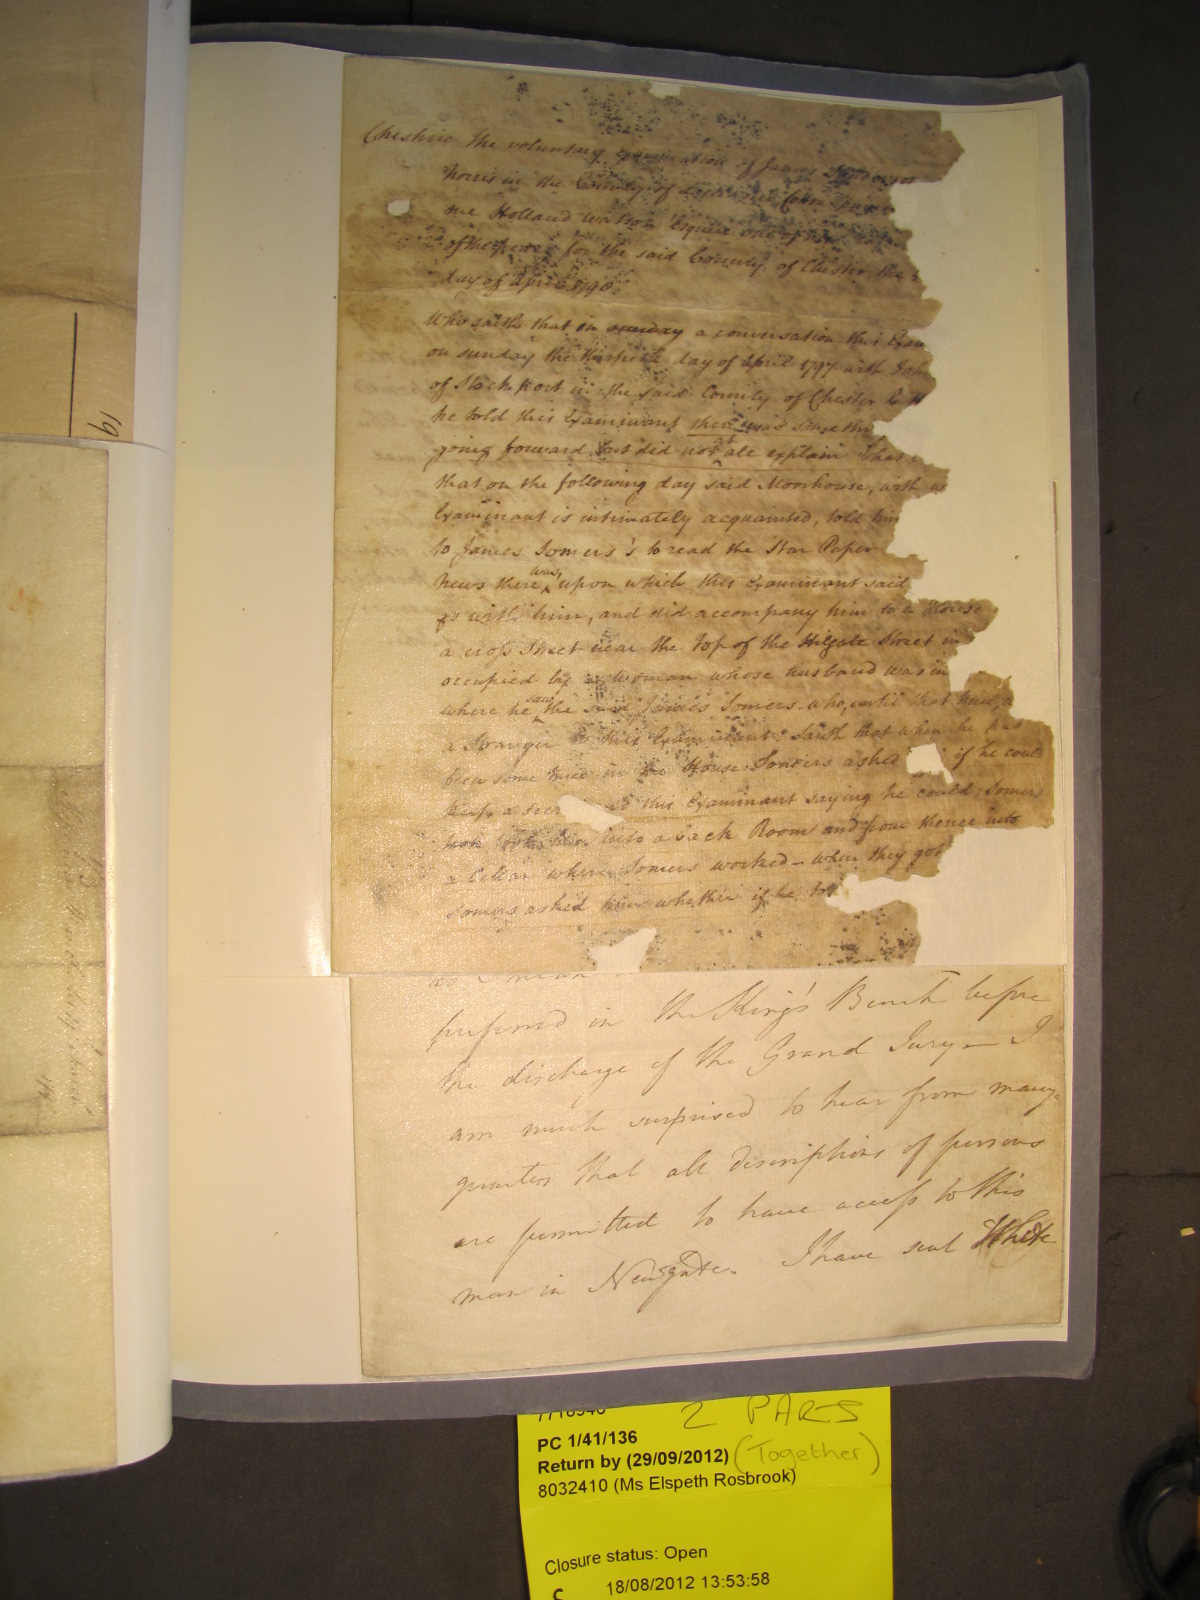 Cheshire The voluntary examination of James
Norris in the County of
me Holland Watson Esquire one of
of the peace for the said County of Chester the
day of April 1798.
Who saith that in sunday a conversation this Exam
on sunday the day of April 1797 with
of Stockport in the said County of Chester
he told this Examinant there was some thin
going forward but did not at all explain that
that on the following day said Moorhouse, with
Examinant is intimately acquainted, told him
to James Somers's to read the Star Paper
news there was, upon which this Examinant said
go with him, and did accompany him to a House
a cross Street near the top of the Hilgate Street in
occupied by a Woman whose husband was in
where he saw the said James Somers who, until that time,
a Stranger to this Examinant. Saith that when he had
been some time in the House Somers asked if he could
keep a secr this Examinant saying he could, Somers
took him into a back Room and from thence into
a Cellar where Somers worked — when they got
Somers asked him whether if he
preferred in the King's Bench before
the discharge of the Grand Jury — I
am much surprised to hear from many
quarters that all descriptions of persons
are permitted to have access to this
man in Newgate. I have sent White
19
7718946
2 PARTS
PC 1/41/136
Return by (29/09/2012) (Together)
8032410 (Ms Elspeth Rosbrook)
Closure status: Open
18/08/2012 13:53:58